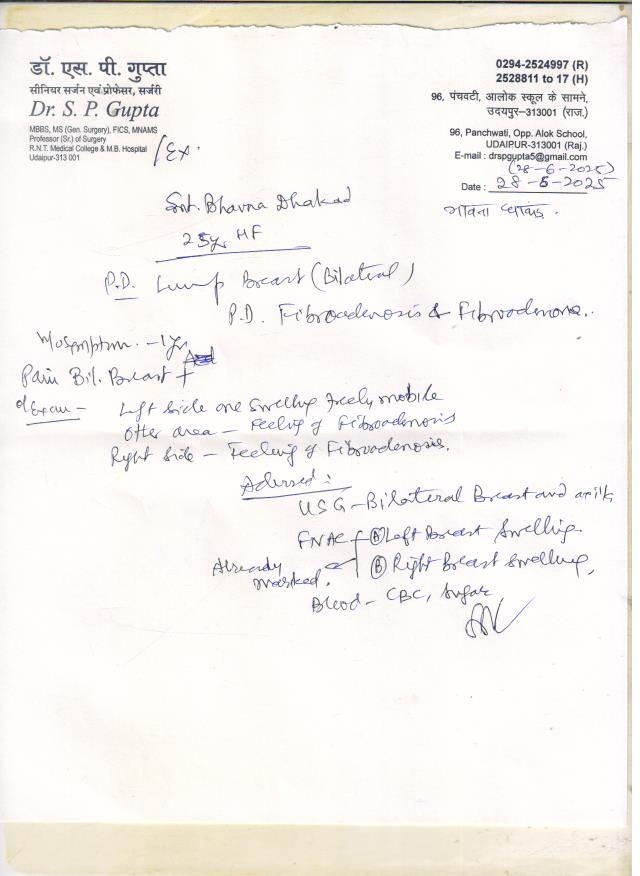 डॉ. एस. पी. गुप्ता
सीनियर सर्जन एवं प्रोफेसर, सर्जरी
Dr. S. P. Gupta
MBBS, MS (Gen. Surgery), FICS, MNAMS
Professor (Sr.) of Surgery
R.N.T. Medical College & M.B. Hospital
Udaipur-313 001
0294-2524997 (R)
2528811 to 17 (H)
96, पंचवटी, आलोक स्कूल के सामने,
उदयपुर–313001 (राज.)
96, Panchwati, Opp. Alok School,
UDAIPUR-313001 (Raj.)
E-mail : drspgupta5@gmail.com
(28-6-2025)
Date : 28-6-2025
/Ex.
Smt. Bhavna Dhakad
भावना
25yr HF
P.D. Lump Breast (Bilateral)
P.D. Fibroadenosis & Fibroadenoma..
- 1yr
Pain Bil. Breast +
o/Exam - Left Side one Swelling freely mobile
Other area - Feeling of Fibroadenosis
Right Side - Feeling of Fibroadenosis.
Advised :
USG - Bilateral Breast and
FNAC - (A) Left Breast Swelling.
(B) Right Breast Swelling,
Already marked.
Blood - CBC, Sugar